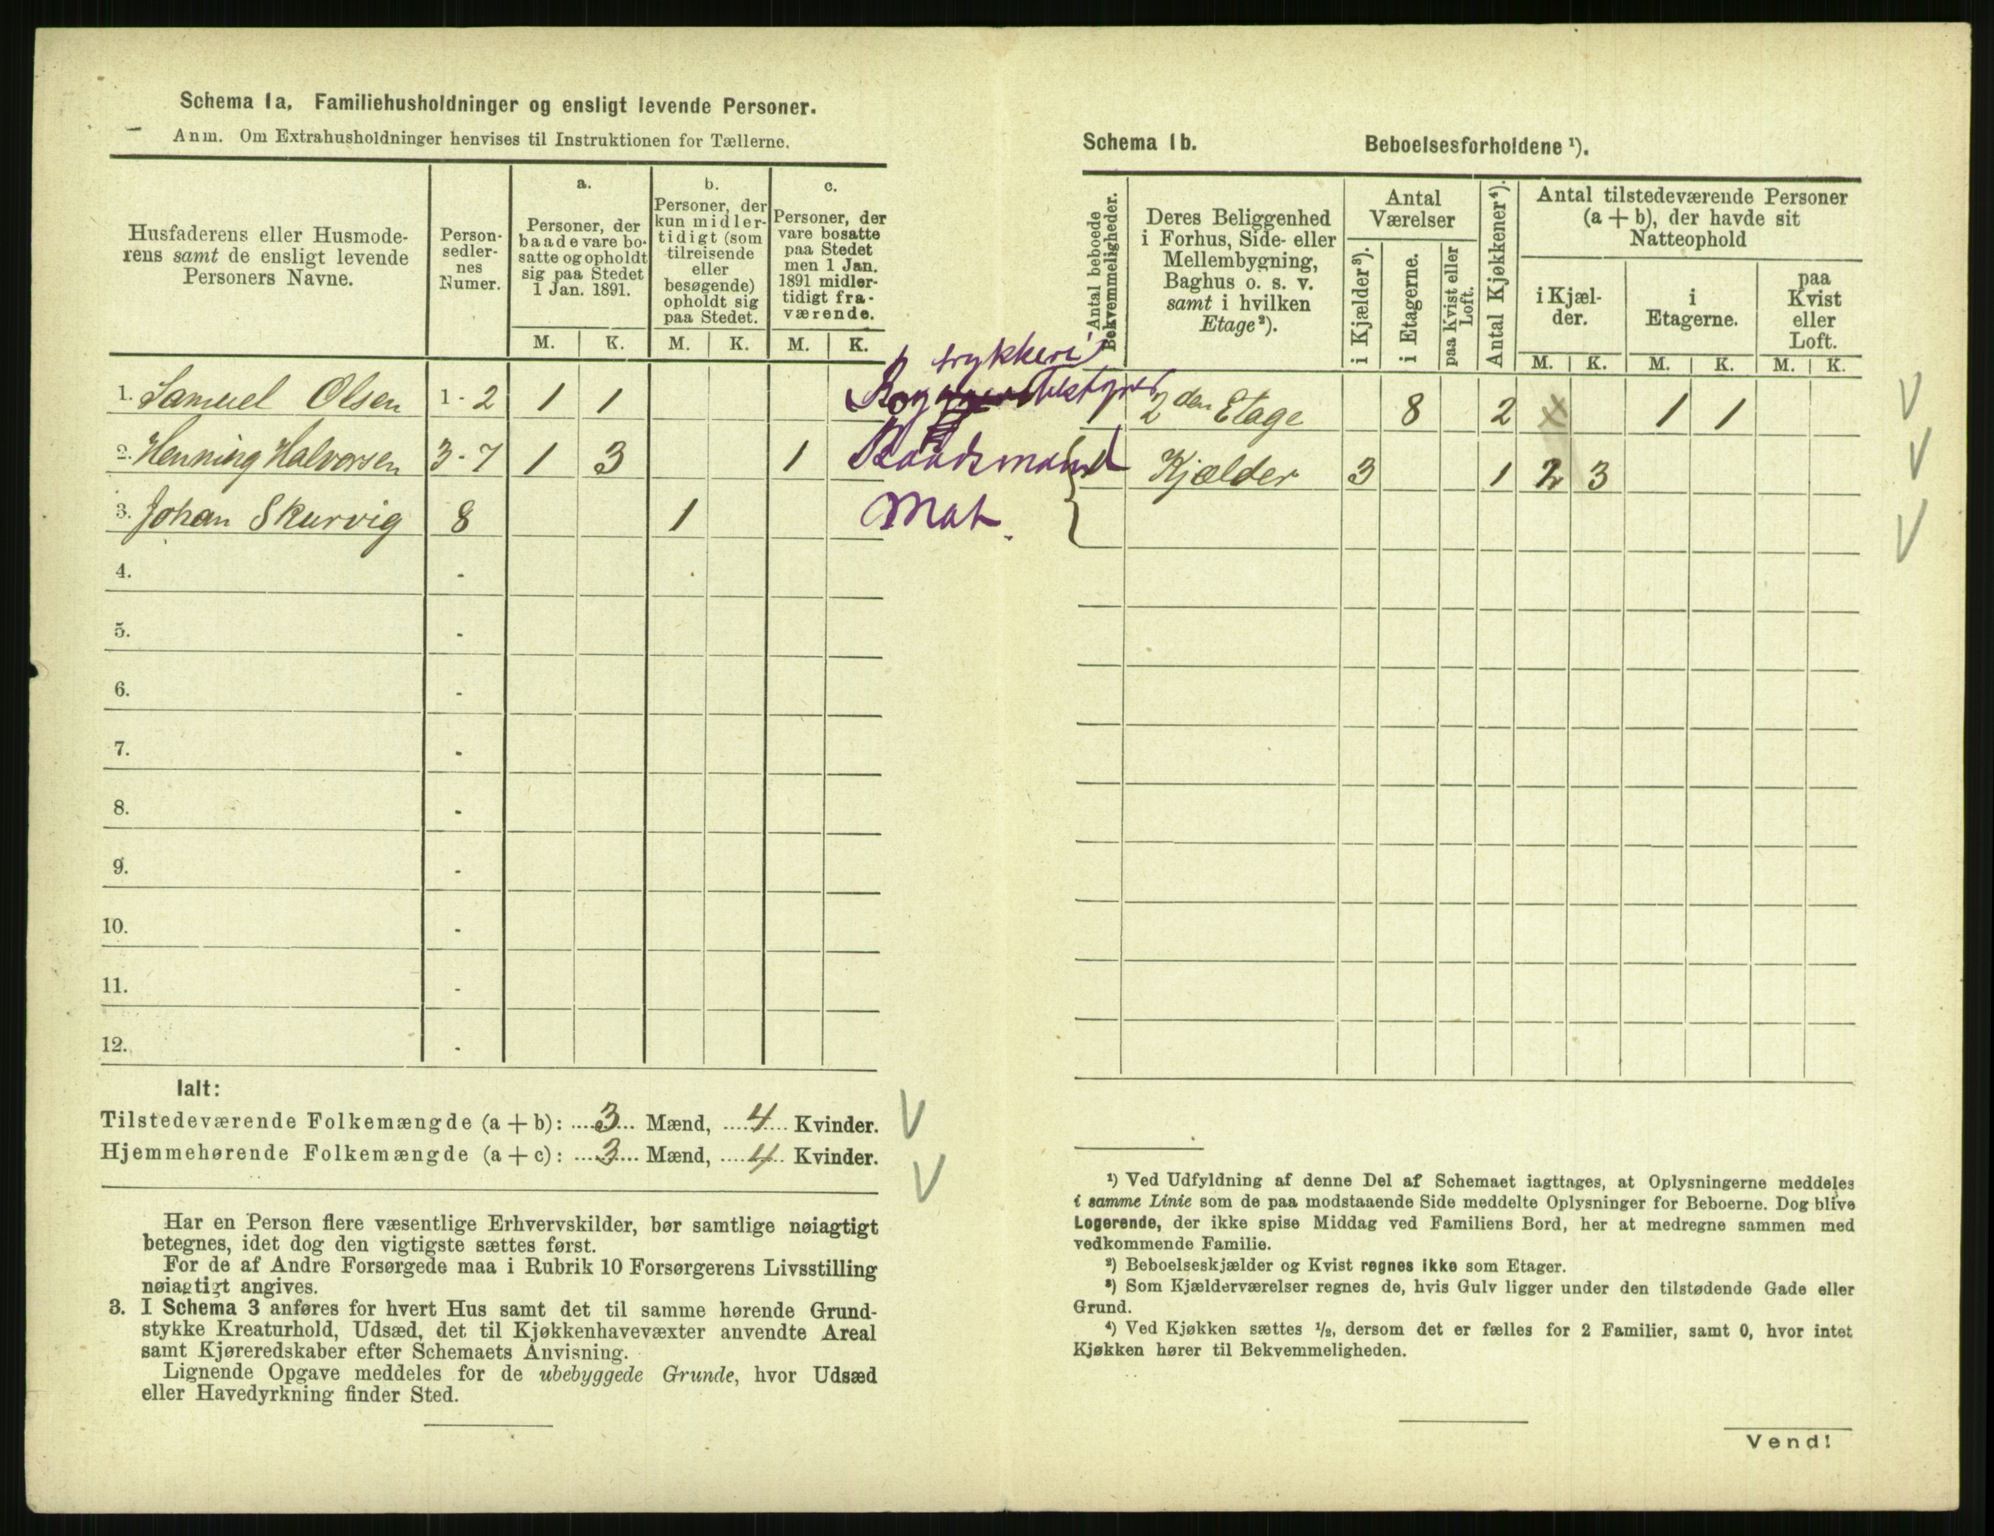 Schema 1a. Familiehusholdninger og ensligt levende Personer.
Anm. Om Extrahusholdninger henvises til Instruktionen for Tællerne.
Husfaderens eller Husmode-
rens samt de ensligt levende
Personers Navne.
Person-
sedler-
nes
Numer.
a.
Personer, der
baade vare bo-
satte og opholdt
sig paa Stedet
1 Jan. 1891.
b.
Personer, der
kun midler-
tidigt (som
tilreisende
eller
besøgende)
opholdt sig
paa Stedet.
c.
Personer, der
vare bosatte
paa Stedet
men 1 Jan.
1891 midler-
tidigt fra-
værende.
M. K. M. K. M. K.
trykkeri
1. Samuel Olsen 1-2 1 1
2. Henning Halvorsen 3-7 1 3 1 Baadsmand
3. Johan Skurvig 8 1 Mat.
4. -
5. -
6. -
7. -
8. -
9. -
10. -
11. -
12. -
Ialt:
Tilstedeværende Folkemængde (a + b): 3 Mænd, 4 Kvinder.
Hjemmehørende Folkemængde (a + c): 3 Mænd, 4 Kvinder.
Har en Person flere væsentlige Erhvervskilder, bør samtlige nøiagtigt
betegnes, idet dog den vigtigste sættes først.
For de af Andre Forsørgede maa i Rubrik 10 Forsørgerens Livsstilling
nøiagtigt angives.
3. I Schema 3 anføres for hvert Hus samt det til samme hørende Grund-
stykke Kreaturhold, Udsæd, det til Kjøkkenhavevæxter anvendte Areal
samt Kjøreredskaber efter Schemaets Anvisning.
Lignende Opgave meddeles for de ubebyggede Grunde, hvor Udsæd
eller Havedyrkning finder Sted.
Schema 1b. Beboelsesforholdene ¹).
Antal beboede
Bekvemmeligheder.
Deres Beliggenhed
i Forhus, Side- eller
Mellembygning,
Baghus o. s. v.
samt i hvilken
Etage²).
Antal
Værelser
i Kjælder³).
i Etagerne.
paa Kvist eller
Loft.
Antal Kjøkkener⁴).
Antal tilstedeværende Personer
(a + b), der havde sit
Natteophold
i Kjæl-
der.
i
Etagerne.
paa
Kvist
eller
Loft.
M. K. M. K. M. K.
2den Etage 8 2 x 1 1
Kjælder 3 1 2 3
¹) Ved Udfyldning af denne Del af Schemaet iagttages, at Oplysningerne meddeles
i samme Linie som de paa modstaaende Side meddelte Oplysninger for Beboerne. Dog blive
Logerende, der ikke spise Middag ved Familiens Bord, her at medregne sammen med
vedkommende Familie.
²) Beboelseskjælder og Kvist regnes ikke som Etager.
³) Som Kjælderværelser regnes de, hvis Gulv ligger under den tilstødende Gade eller
Grund.
⁴) Ved Kjøkken sættes ½, dersom det er fælles for 2 Familier, samt 0, hvor intet
Kjøkken hører til Bekvemmeligheden.
Vend!